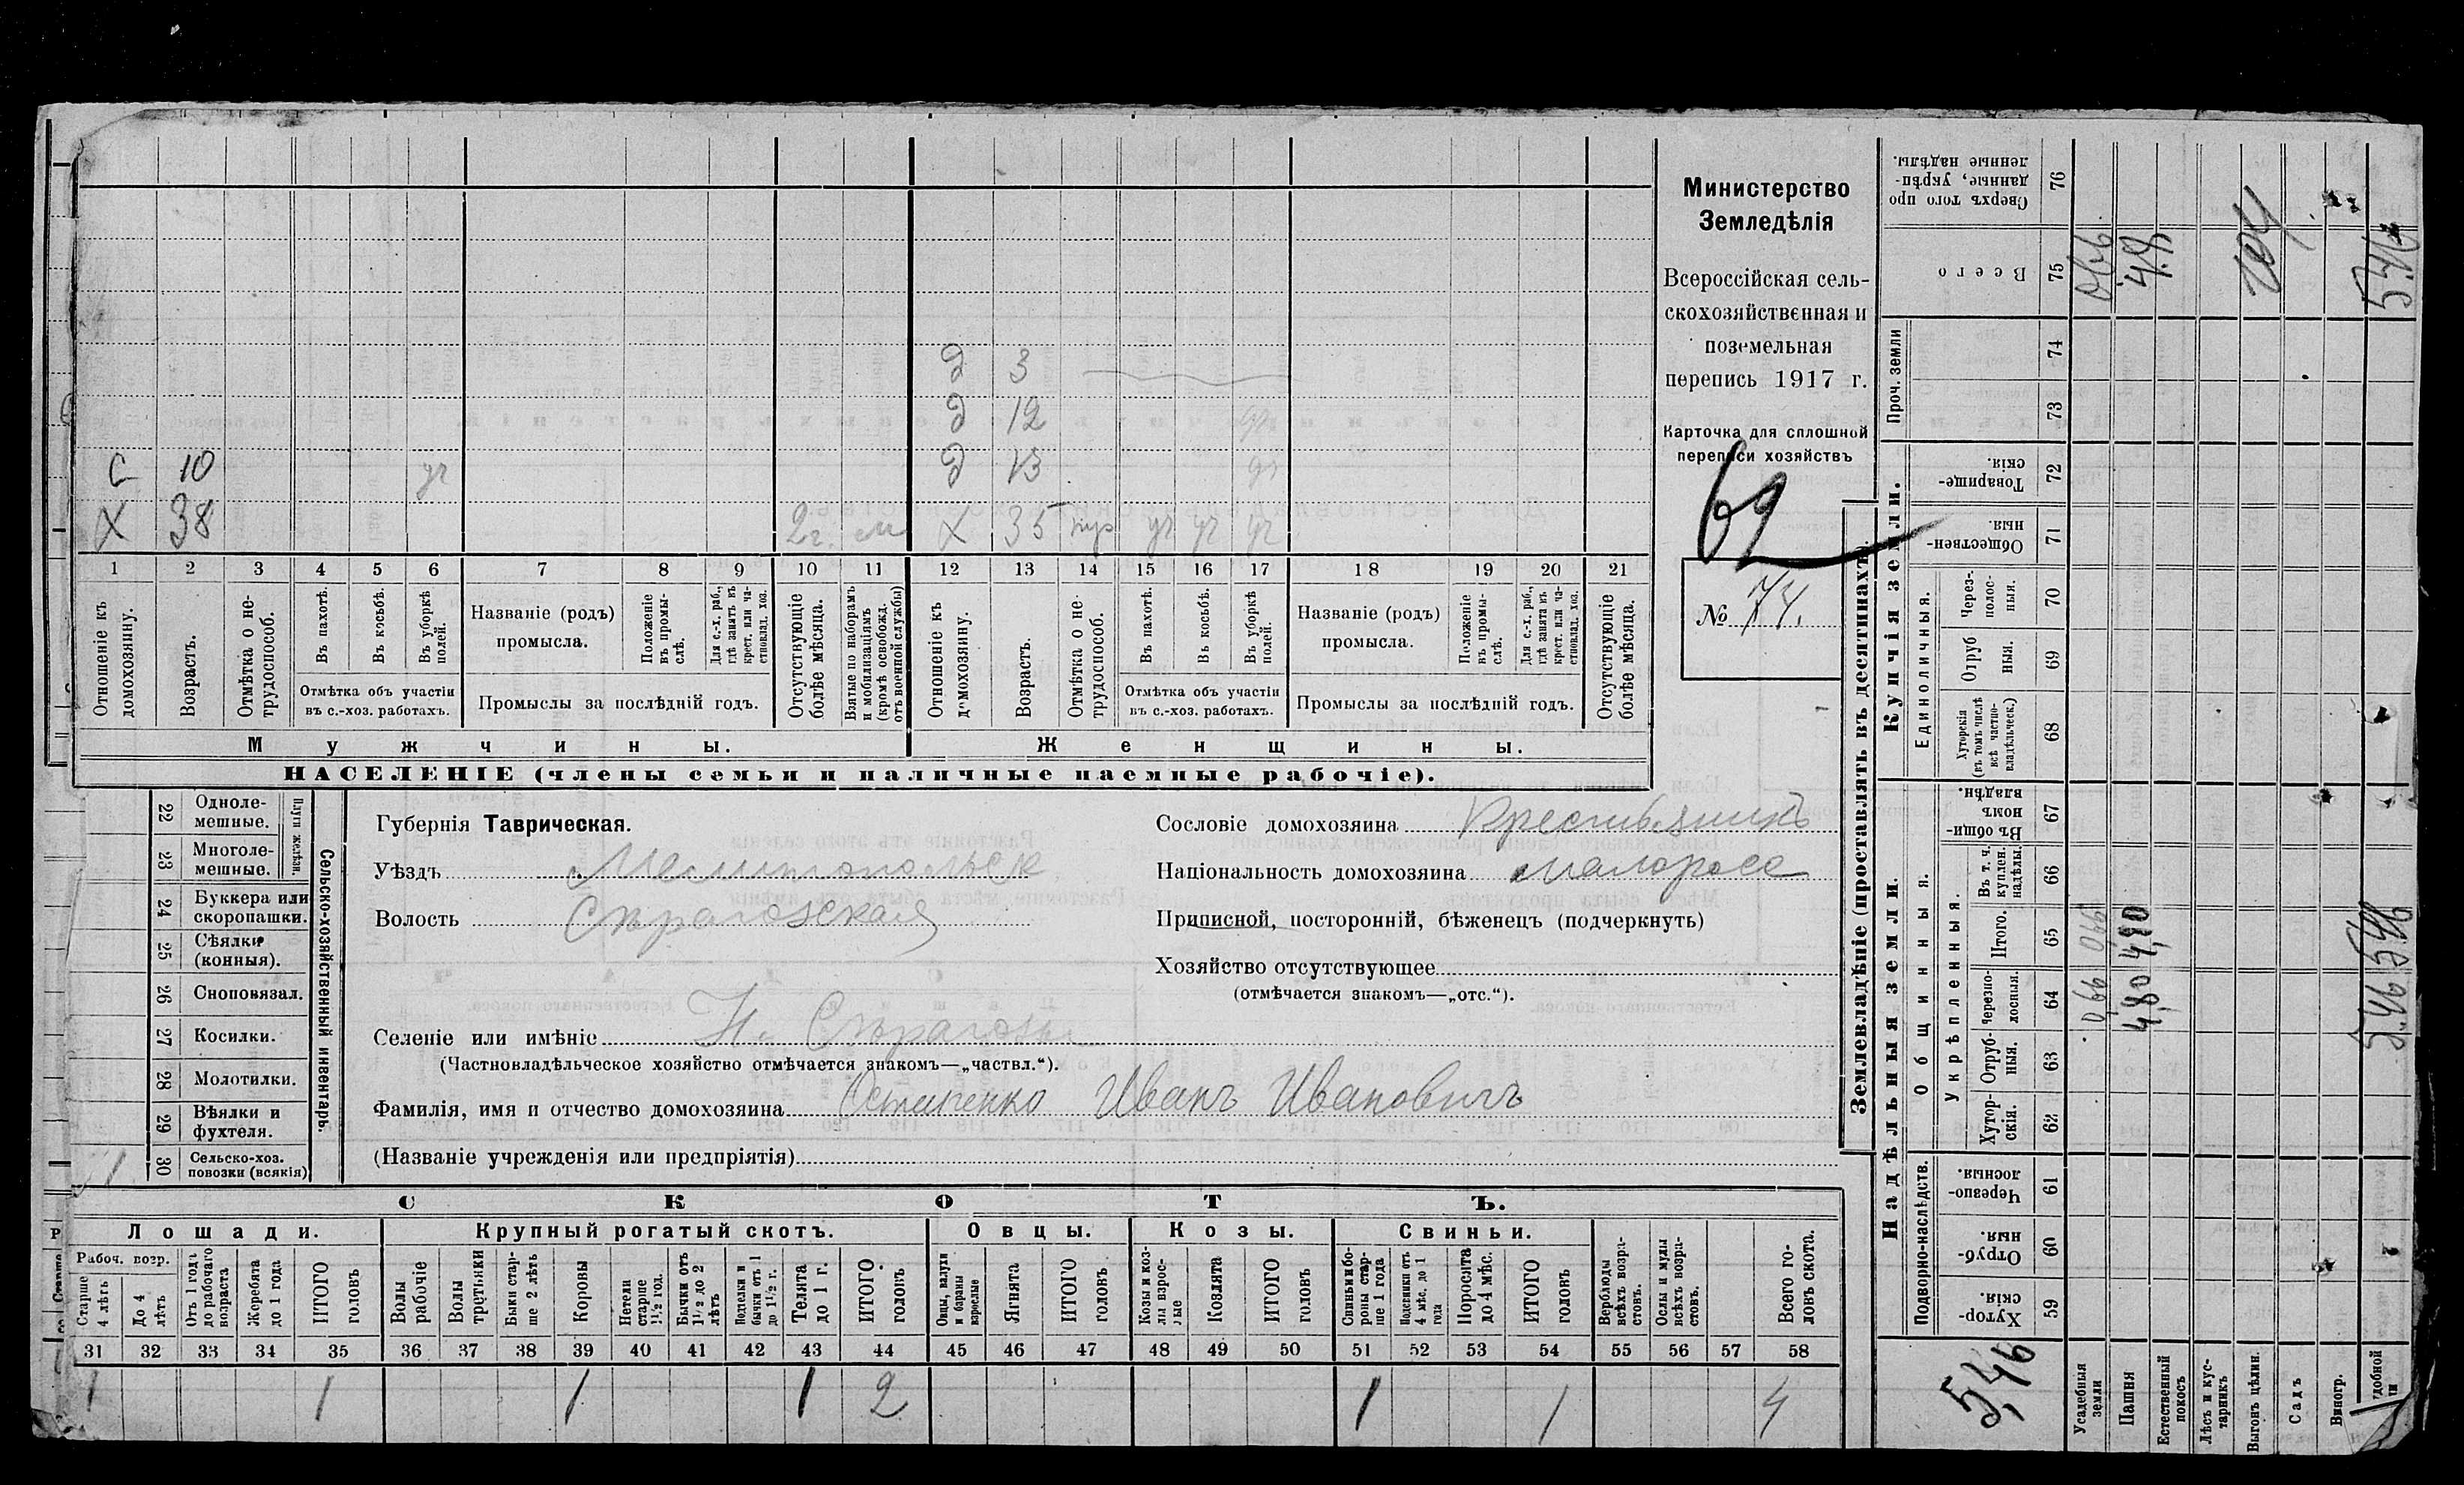 д 3
д 12 уч
С 10 уч д 13 уч
Х 38 2г. м Х 35 уч уч уч
1 2 3 4 5 6 7 8 9 10 11 12 13 14 15 16 17 18 19 20 21
Отношеніе къ домохозяину.
Возрастъ.
Отмѣтка о нетрудоспособ.
Въ пахотѣ.
Въ косьбѣ.
Въ уборкѣ полей.
Отмѣтка объ участіи въ с.-хоз. работахъ.
Названіе (родъ) промысла.
Положеніе въ промыслѣ.
Для с.-х. раб., гдѣ занятъ въ крест. или частновлад. хоз.
Промыслы за послѣдній годъ.
Отсутствующіе болѣе мѣсяца.
Взятые по наборамъ и мобилизаціямъ (кромѣ освобожд. отъ военной службы)
Отношеніе къ домохозяину.
Возрастъ.
Отмѣтка о не трудоспособ.
Въ пахотѣ.
Въ косьбѣ.
Въ уборкѣ полей.
Отмѣтка объ участіи въ с.-хоз. работахъ.
Названіе (родъ) промысла.
Положеніе въ промыслѣ.
Для с.-х. раб., гдѣ занятъ въ крест. или частновлад. хоз.
Промыслы за послѣдній годъ.
Отсутствующіе болѣе мѣсяца.
Мужчины. Женщины.
НАСЕЛЕНІЕ (члены семьи и наличные наемные рабочіе).
Министерство
Земледѣлія
Всероссійская сель-
скохозяйственная и
поземельная
перепись 1917 г.
Карточка для сплошной
переписи хозяйствъ
69
№ 74.
22 Однолемешные.
23 Многолемешные.
Плуги желѣзн.
24 Буккера или скоропашки.
25 Сѣялки (конныя).
26 Сноповязал.
27 Косилки.
28 Молотилки.
29 Вѣялки и фухтеля.
30 Сельско-хоз. повозки (всякія) 1
Сельско-хозяйственный инвентарь.
Губернія Таврическая.
Уѣздъ Мелитопольск
Волость Сѣрагозская
Сословіе домохозяина Крестьянинъ
Національность домохозяина малоросс
Приписной, посторонній, бѣженецъ (подчеркнуть)
Хозяйство отсутствующее
(отмѣчается знакомъ—„отс.“).
Селеніе или имѣніе Н. Сѣрагозы
(Частновладѣльческое хозяйство отмѣчается знакомъ—„частвл.“).
Фамилія, имя и отчество домохозяина Остапенко Иванъ Ивановичъ
(Названіе учрежденія или предпріятія)
СКОТЪ.
Лошади. Крупный рогатый скотъ. Овцы. Козы. Свиньи.
Рабоч. возр.
Старше 4 лѣтъ
До 4 лѣтъ
Отъ 1 годъ до рабочаго возраста
Жеребята до 1 года
ИТОГО головъ
Волы рабочіе
Волы третьяки
Быки старше 2 лѣтъ
Коровы
Нетели старше 1½ год.
Бычки отъ 1½ до 2 лѣтъ
Подтелки и бычки отъ 1 до 1½ г.
Телята до 1 г.
ИТОГО головъ
Овцы, валухи и бараны взрослые
Ягнята
ИТОГО головъ
Козы и козлы взрослые
Козлята
ИТОГО головъ
Свиньи и бороны старше 1 года
Подсвинки отъ 4 мѣс. до 1 года
Поросята до 4 мѣс.
ИТОГО головъ
Верблюды всѣхъ возрастовъ.
Ослы и мулы всѣхъ возрастовъ.
Всего головъ скота.
31 32 33 34 35 36 37 38 39 40 41 42 43 44 45 46 47 48 49 50 51 52 53 54 55 56 57 58
1 1 1 1 2 1 1 4
Землевладѣніе (проставлять въ десятинахъ).
Надѣльныя земли. Купчія земли. Проч. земли
Подворно-наслѣдств.
Общинныя.
Укрѣпленныя.
Единоличныя.
59 Хуторскія.
60 Отрубныя.
61 Черезполосныя.
62 Хуторскія.
63 Отрубныя.
64 Черезполосныя.
65 Итого.
66 Въ т. ч. куплен. надѣлы.
67 Въ общинномъ владѣн.
68 Хуторскія (въ томъ числѣ всѣ частновладѣльческ.)
69 Отрубныя.
70 Черезполосныя.
71 Общественныя.
72 Товарищескія.
73
74
75 Всего
76 Сверхъ того проданные, укрѣпленные надѣлы.
5,46
Усадебныя земли 0,66 0,66 0,66
Пашня 4,80 4,80 4,8
Естественный покосъ
Лѣсъ и кустарникъ
Выгонъ цѣлин.
Садъ
Виногр.
5,46 5,46 5,46